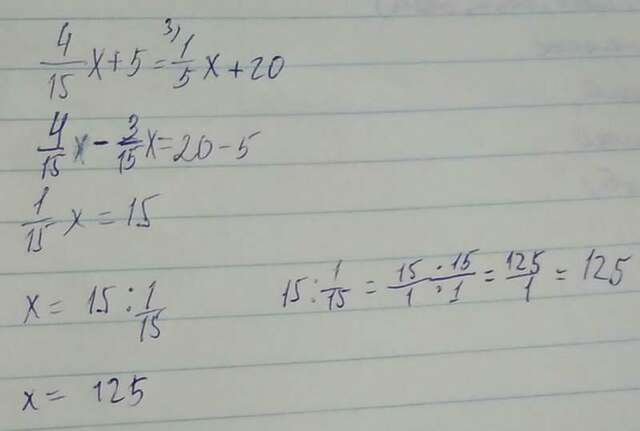 4/15 x + 5 = 3) 1/5 x + 20
4/15 x - 3/15 x = 20 - 5
1/15 x = 15
x = 15 : 1/15
15 : 1/15 = 15 · 15 / 1 · 1 = 125/1 = 125
x = 125